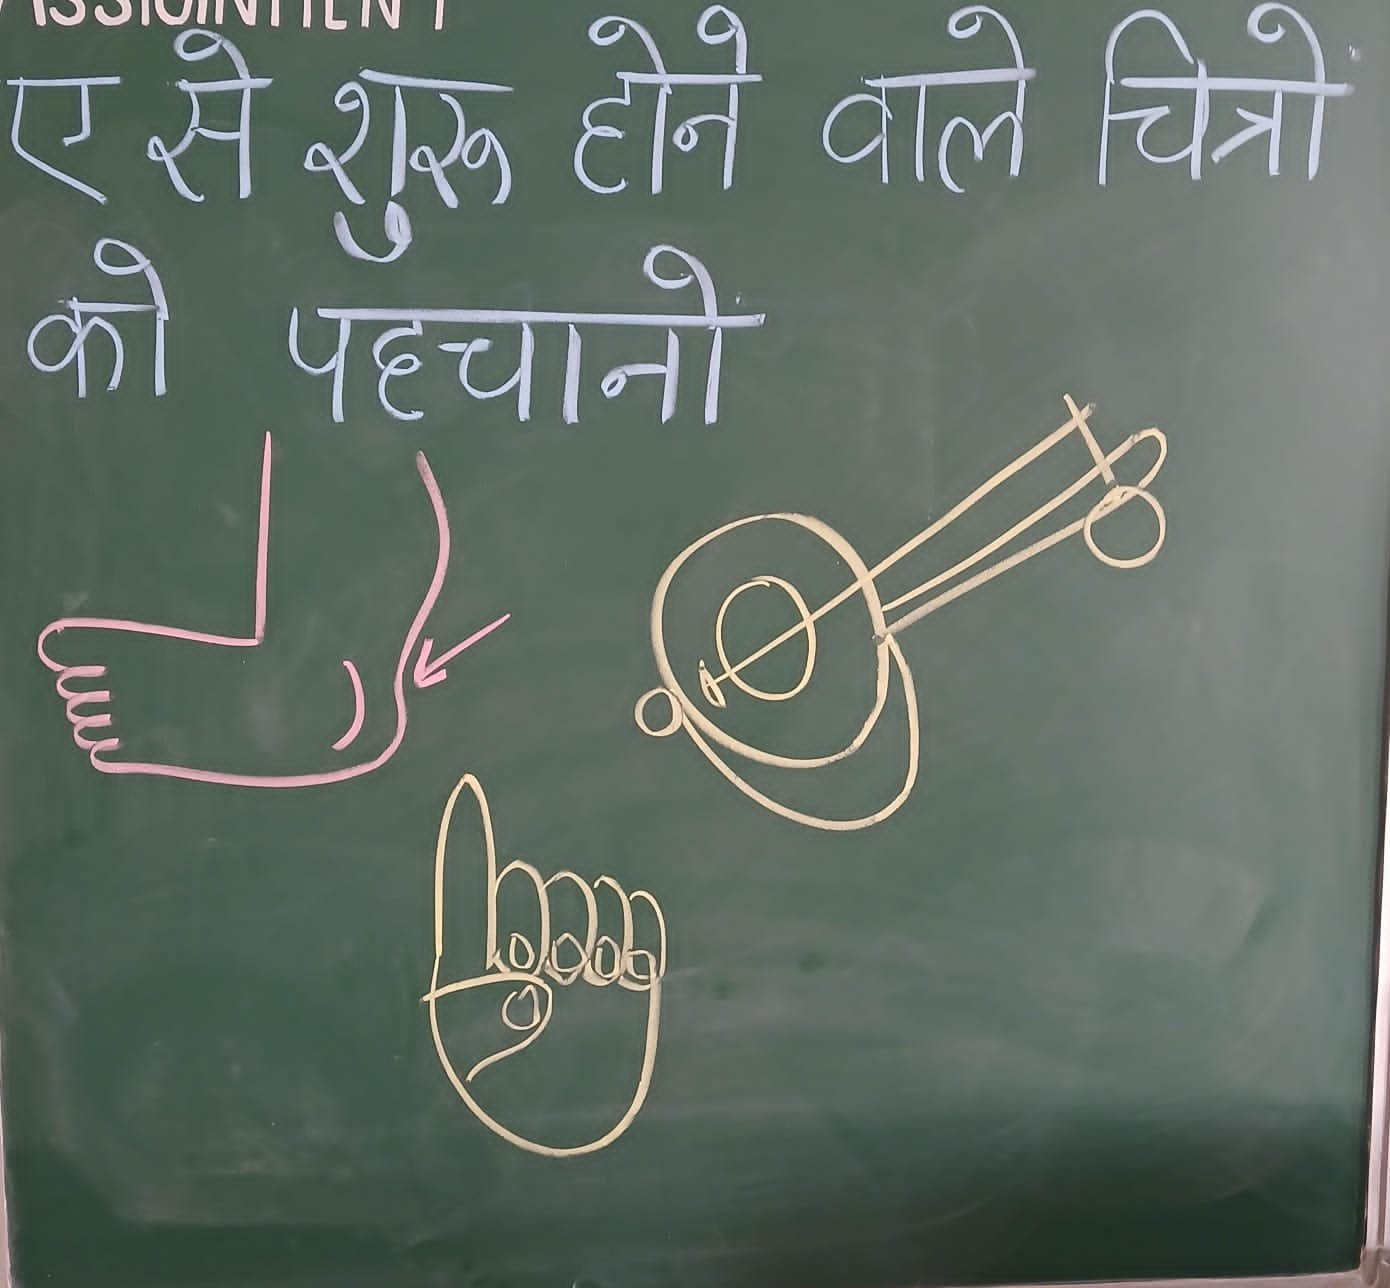 ASSIGNMENT
ए से शुरू होने वाले चित्रों
को पहचानो